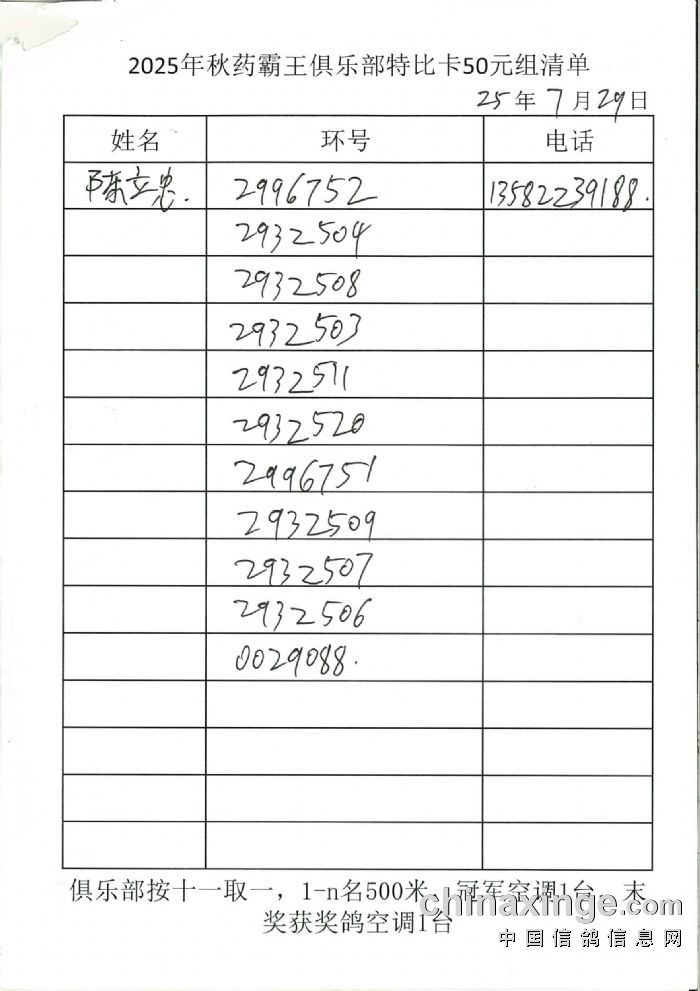 2025年秋药霸王俱乐部特比卡50元组清单
25年7月29日
姓名 环号 电话
陈立忠. 2996752 13582239188.
2932504
2932508
2932503
2932511
2932520
2996751
2932509
2932507
2932506
0029088.
俱乐部按十一取一，1-n名500米，冠军空调1台，末
奖获奖鸽空调1台
chinaxinge.com
中国信鸽信息网